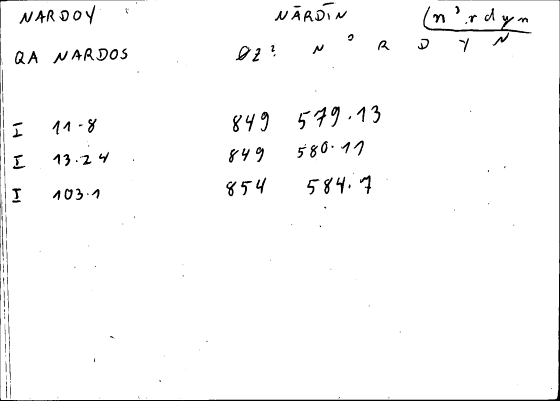 NARDOY NĀRDĪN (n'rdyn
QA NARDOS ØZ? N ' R D Y N
I 11-8 849 579.13
I 13.24 849 580.11
I 103.1 854 584.7